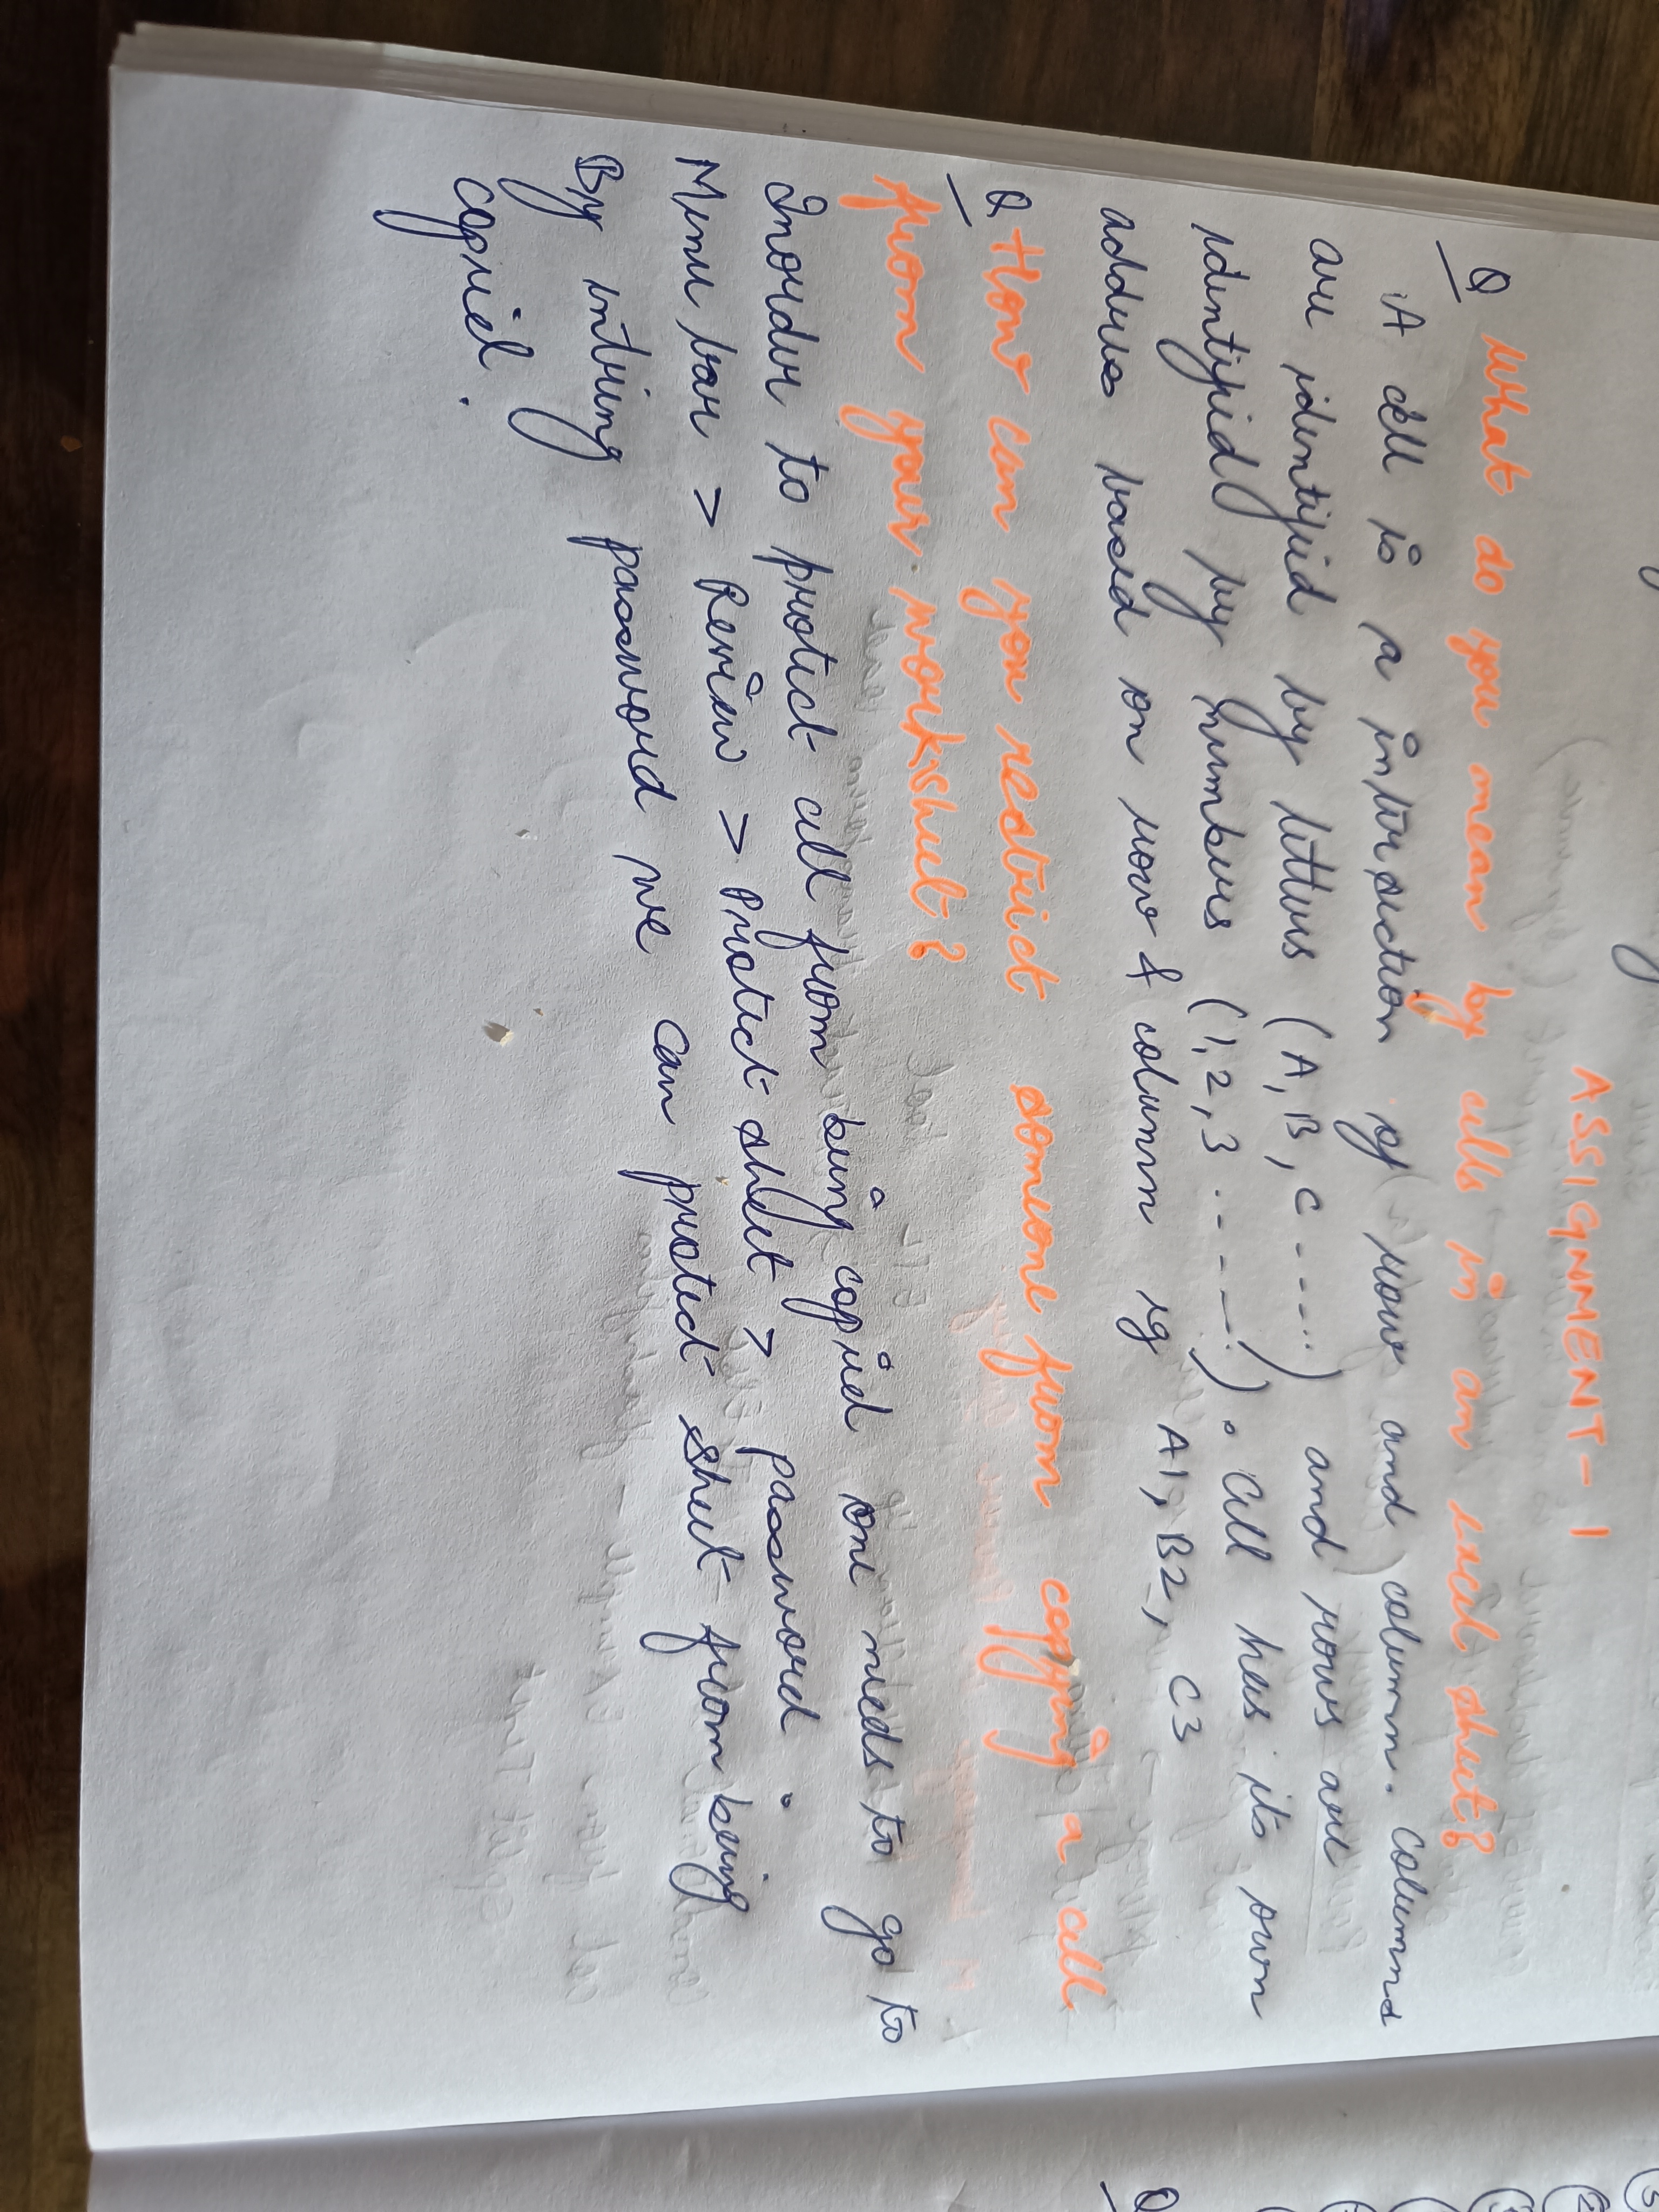 ASSIGNMENT - 1
Q What do you mean by cells in an excel sheet?
A cell is a intersection of row and column. columns
are identified by letters (A, B, C -----) and rows are
identified by numbers (1, 2, 3 ------). Cell has its own
address based on row & column eg A1, B2, C3
Q How can you restrict someone from copying a cell
from your worksheet?
Inorder to protect cell from being copied one needs to go to
Menu bar > Review > Protect sheet > password.
By entering password we can protect sheet from being
copied.
Q